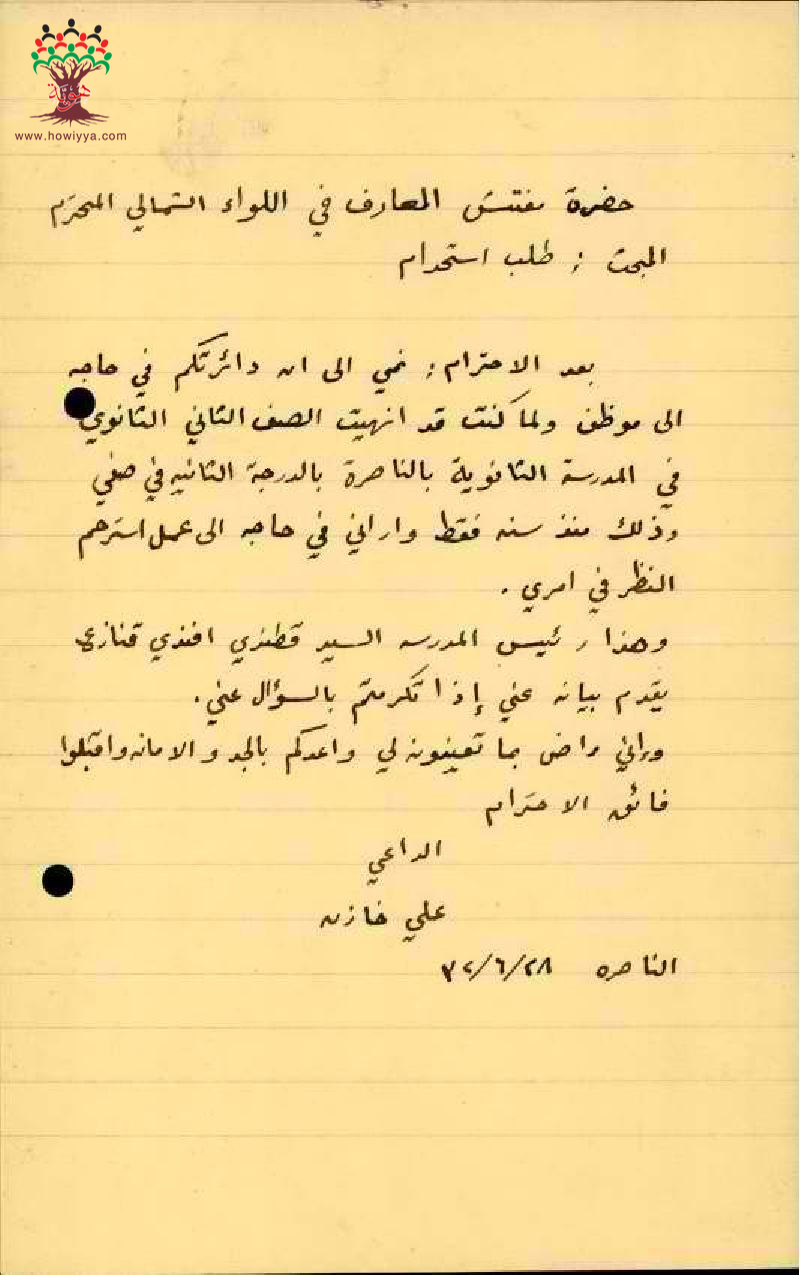 هوية
www.howiyya.com
حضرة مفتش المعارف في اللواء الشمالي المحترم
المبحث : طلب استخدام
بعد الاحترام : نمي الى ان دائرتكم في حاجه
الى موظف ولما كنت قد انهيت الصف الثاني الثانوي
في المدرسة الثانوية بالناصرة بالدرجة الثانيه في صفي
وذلك منذ سنه فقط واراني في حاجه الى عمل استرحم
النظر في امري .
وهذا رئيس المدرسه السيد قطندي افندي قنازع
يقدم بيانه عني إذا تكرمتم بالسؤال عني .
واني راض بما تعينونه لي واعدكم بالجد والامانه واقبلوا
فائق الاحترام
الداعي
علي خازن
الناصره ٢٨/٦/٣٢